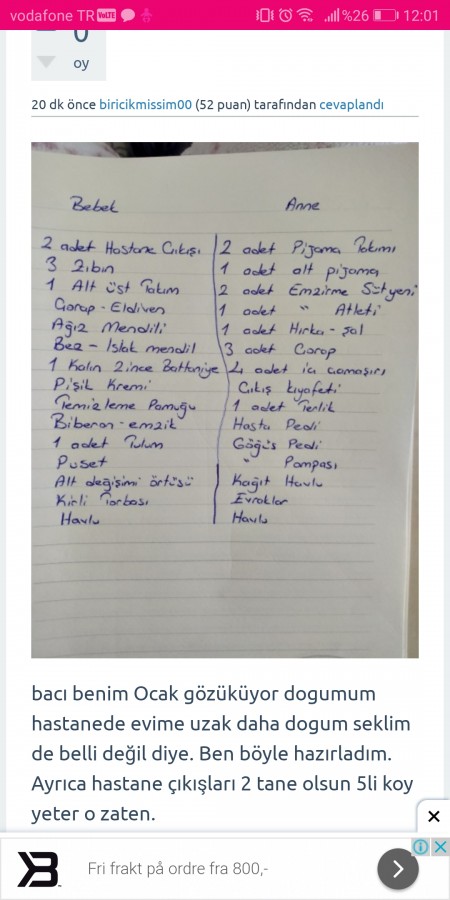 vodafone TR VoLTE %26 12:01
0
oy
20 dk önce biricikmissim00 (52 puan) tarafından cevaplandı
Bebek
2 adet Hastane Çıkışı
3 Zıbın
1 Alt üst Takım
Çorap - Eldiven
Ağız Mendili
Bez - Islak mendil
1 Kalın 2 ince Battaniye
Pişik Kremi
Temizleme Pamuğu
Biberon - emzik
1 adet Tulum
Puset
Alt değişimi örtüsü
Kirli Torbası
Havlu
Anne
2 adet Pijama Takımı
1 adet alt pijama
2 adet Emzirme Sütyeni
1 adet " Atleti
1 adet Hırka - Şal
3 adet Çorap
4 adet iç çamaşırı
Çıkış kıyafeti
1 adet Terlik
Hasta Pedi
Göğüs Pedi
" Pompası
Kağıt Havlu
Evraklar
Havlu
bacı benim Ocak gözüküyor dogumum
hastanede evime uzak daha dogum seklim
de belli değil diye. Ben böyle hazırladım.
Ayrıca hastane çıkışları 2 tane olsun 5li koy
yeter o zaten.
Fri frakt på ordre fra 800,-